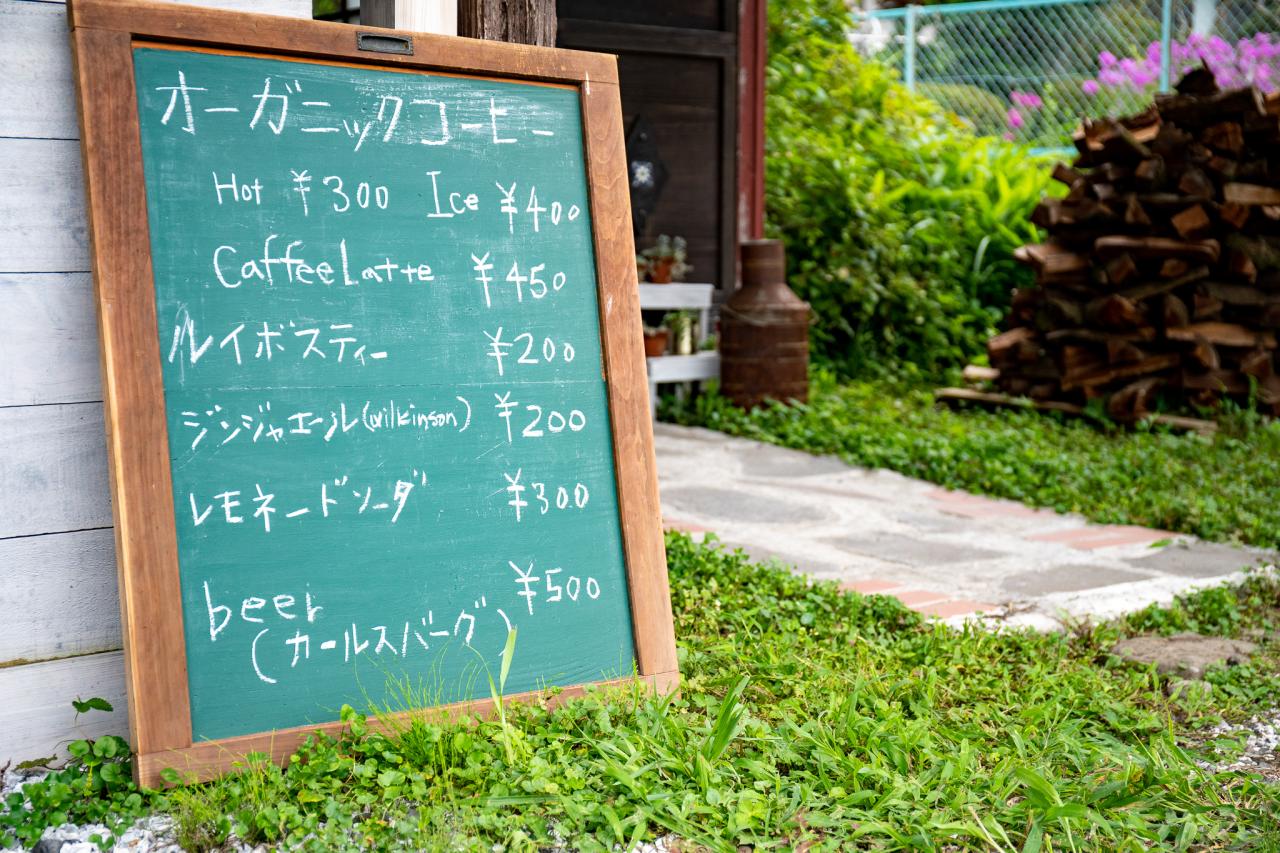 オーガニックコーヒー
Hot ¥300 Ice ¥400
Caffee Latte ¥450
ルイボスティー ¥200
ジンジャエール(wilkinson) ¥200
レモネードソーダ ¥300
beer ¥500
(カールスバーグ)